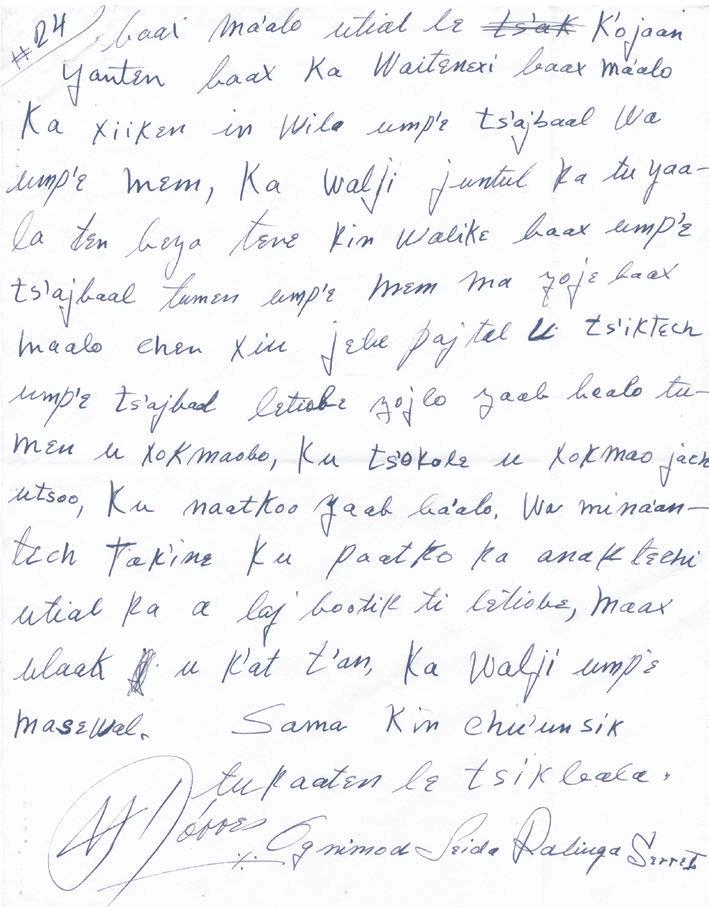 #24
baax má'alo utial le ts'ak K'ojaan
yanten baax Ka Waitenexi baax má'alo
Ka xiiken in Wila ump'e ts'ajbaal Wa
ump'e mem, Ka Walji juntul ka tu yaa-
la ten beya teve Kin Walike baax ump'e
ts'ajbaal tumen ump'e mem ma yoje baax
maalo chen xiu jebe pajtal u ts'iktech
ump'e ts'ajbaal letiobe yojlo yaab bealo tu-
men u xokmaobo, Ku ts'okole u xokmao jach
utsoo, Ku naatkoo yaab ba'alo, Wa mina'an-
tech Tak'ine Ku paatko ka anak techi
utial ka a laj bootik ti letiobe, maax
ulaak u K'at t'an, Ka Walji ump'e
masewal. Sama Kin chu'unsik
tukaaten le tsikbala.
Ognimod Seida Ralinga Serret